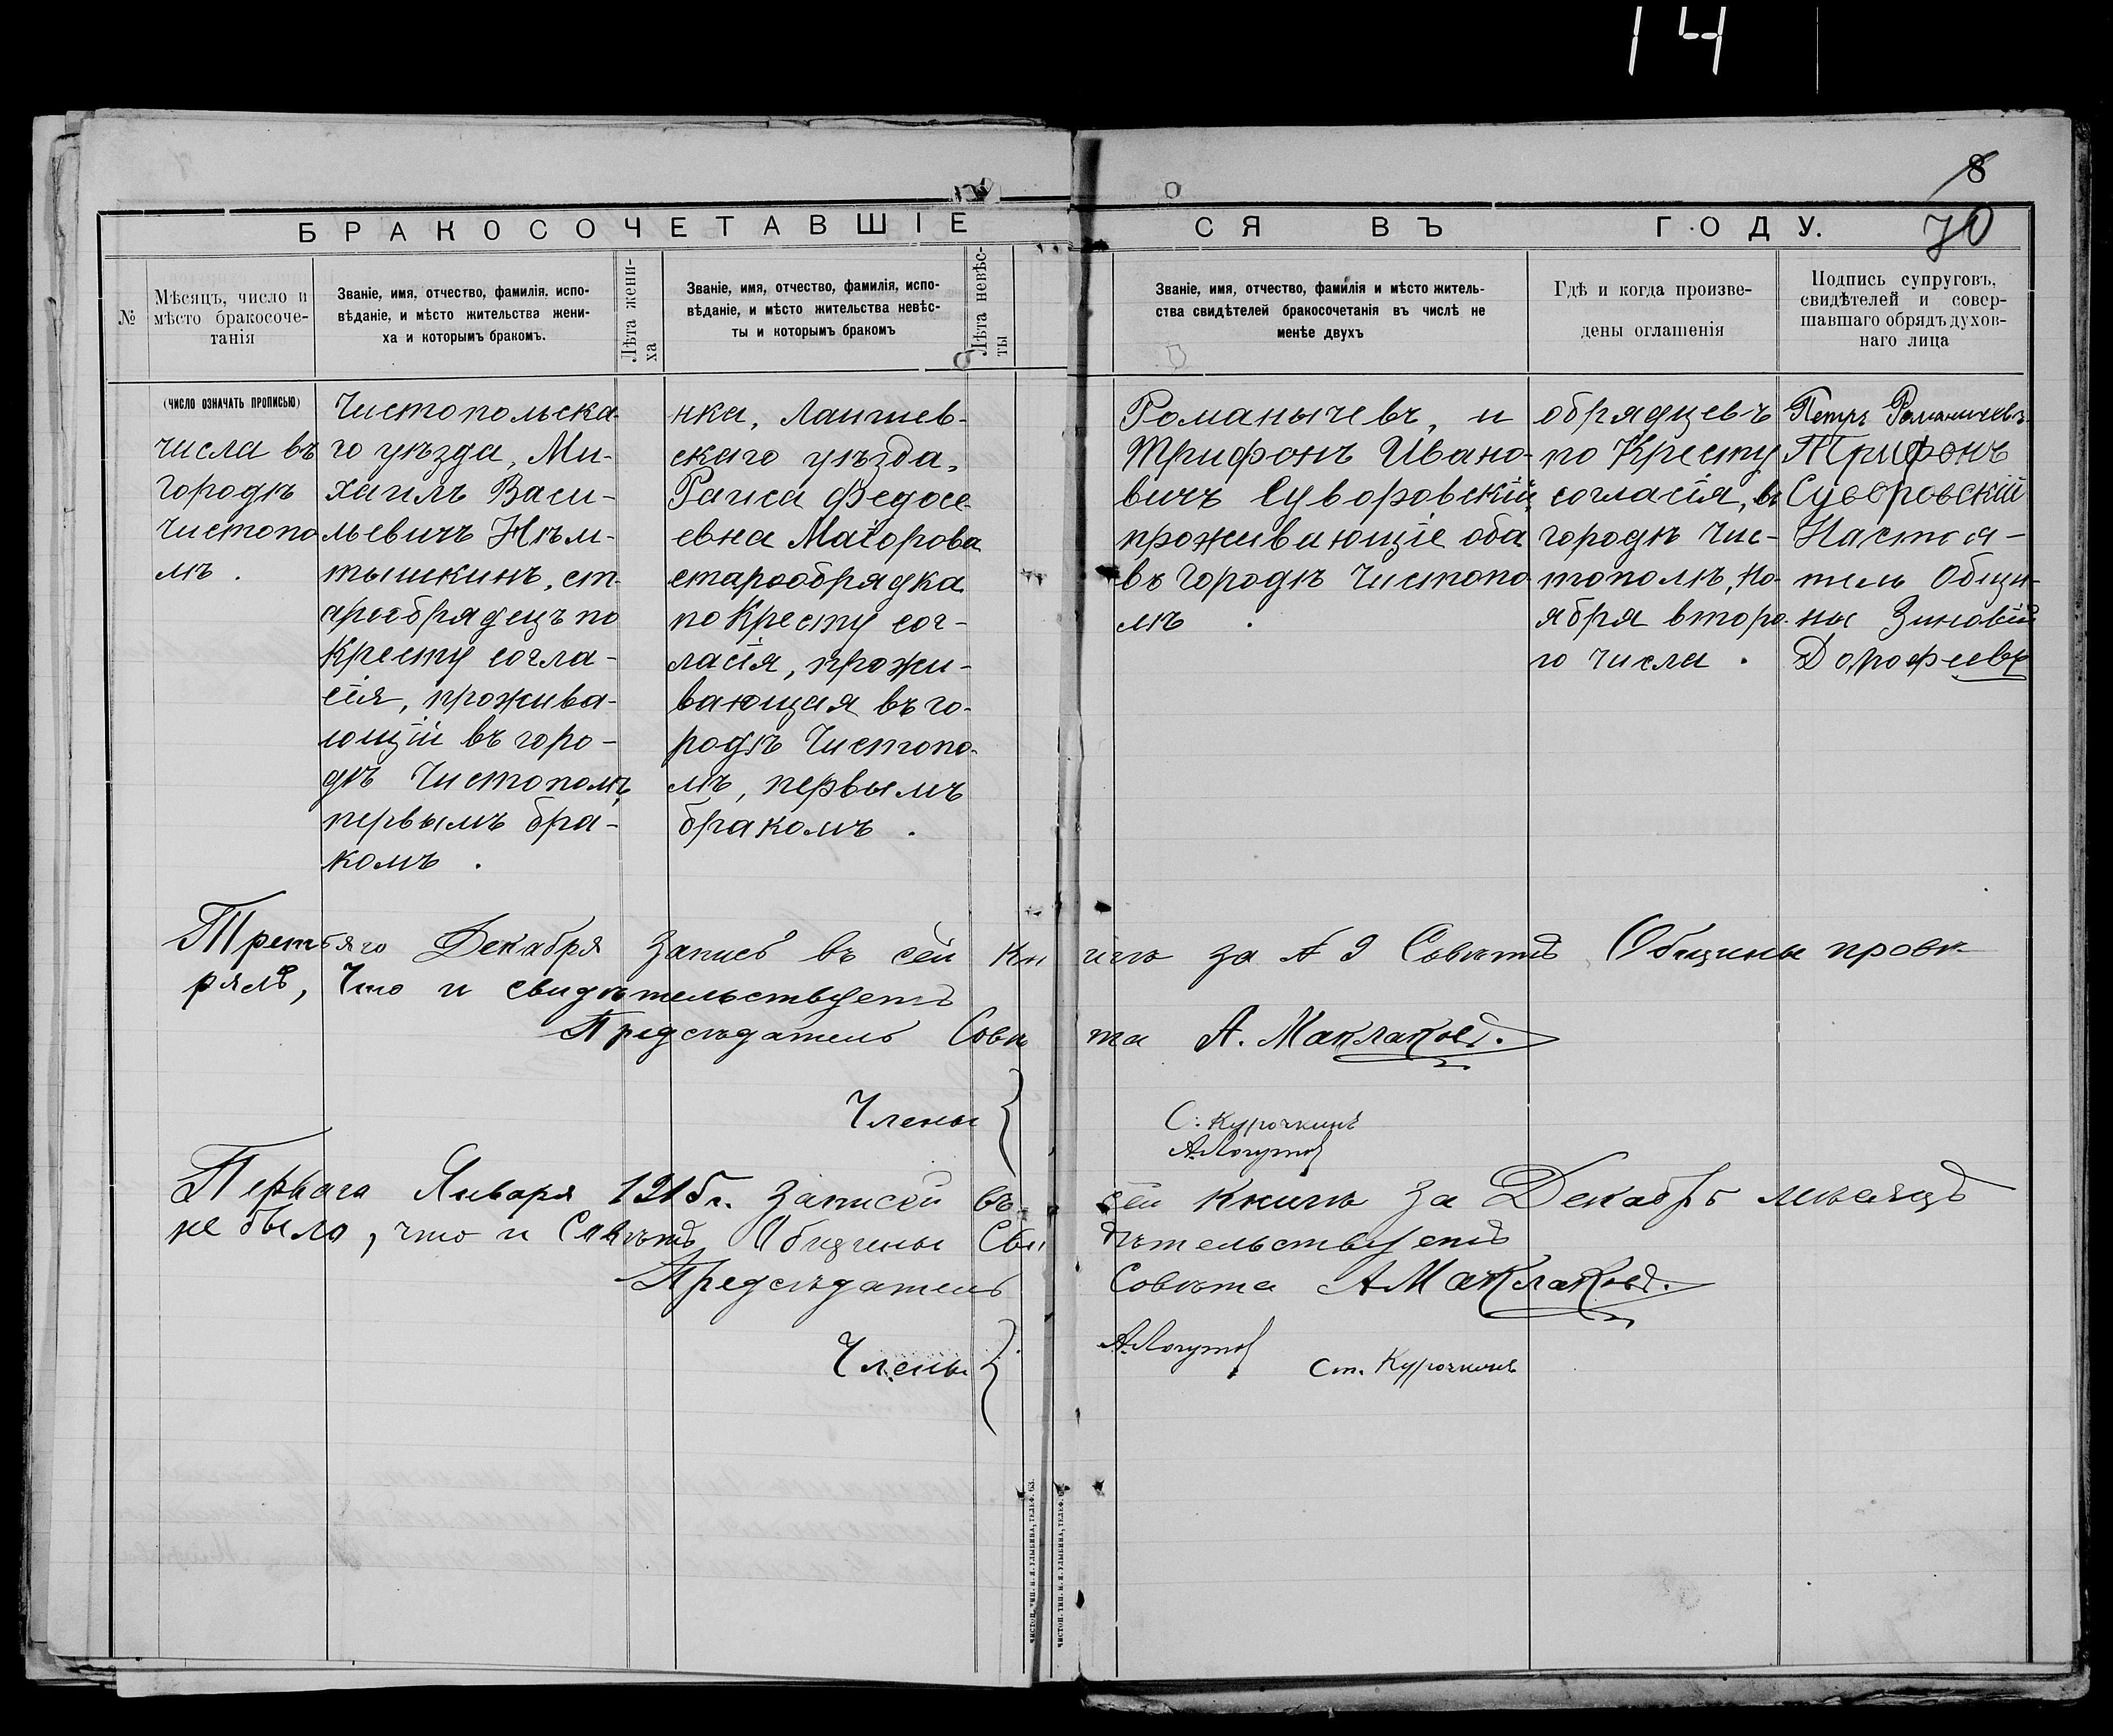 14
8
70
БРАКОСОЧЕТАВШІЕ
СЯ ВЪ ГОДУ.
№
Мѣсяцъ, число и
мѣсто бракосоче-
танія
Званіе, имя, отчество, фамилія, испо-
вѣданіе, и мѣсто жительства жени-
ха и которымъ бракомъ.
Лѣта жени-
ха
Званіе, имя, отчество, фамилія, испо-
вѣданіе, и мѣсто жительства невѣс-
ты и которымъ бракомъ
Лѣта невѣс-
ты
Званіе, имя, отчество, фамилія и мѣсто житель-
ства свидѣтелей бракосочетанія въ числѣ не
менѣе двухъ
Гдѣ и когда произве-
дены оглашенія
Подпись супруговъ,
свидѣтелей и совер-
шавшаго обрядъ духов-
наго лица
(ЧИСЛО ОЗНАЧАТЬ ПРОПИСЬЮ)
числа въ
городѣ
Чистопо
лѣ.
Чистопольска-
го уѣзда, Ми-
хаилъ Васи-
льевичъ
тышкинъ, ст-
арообрядецъ по
Кресту согла-
сія, прожива-
ющій въ горо-
дѣ Чистополѣ,
первымъ бра-
комъ.
нка, Лаишев-
скаго уѣзда,
Раиса Федосе-
евна Маіорова
старообрядка
по Кресту сог-
ласія, прожи-
вающая въ го-
родѣ Чистопо-
лѣ, первымъ
бракомъ.
Романычевъ, и
Трифонъ Ивано-
вичъ Суворовскій,
проживающіе оба
въ городѣ Чистопо
лѣ.
обрядцевъ
по Кресту
согласія, въ
городѣ Чис-
тополѣ, Но-
ября второ-
го числа.
Петръ Романычевъ
Трифонъ
Суворовскій
Настоя-
тель Общи-
ны Зиновій
Дорофеевъ
Третьяго Декабря запись въ сей книгѣ за № 9 Совѣтъ Общины провѣ-
рялъ, что и свидѣтельствуетъ
Предсѣдатель Совѣта А. Маклаковъ.
Члены
С. Курочкинъ
А. Логутов
Перваго Января 1915 г. записей въ сей книгѣ за Декабрь мѣсяцъ
не было, что и Совѣтъ Общины Свидѣтельствуетъ
Предсѣдатель Совѣта А Маклаковъ.
Члены
А. Логутов
Ст. Курочкинъ